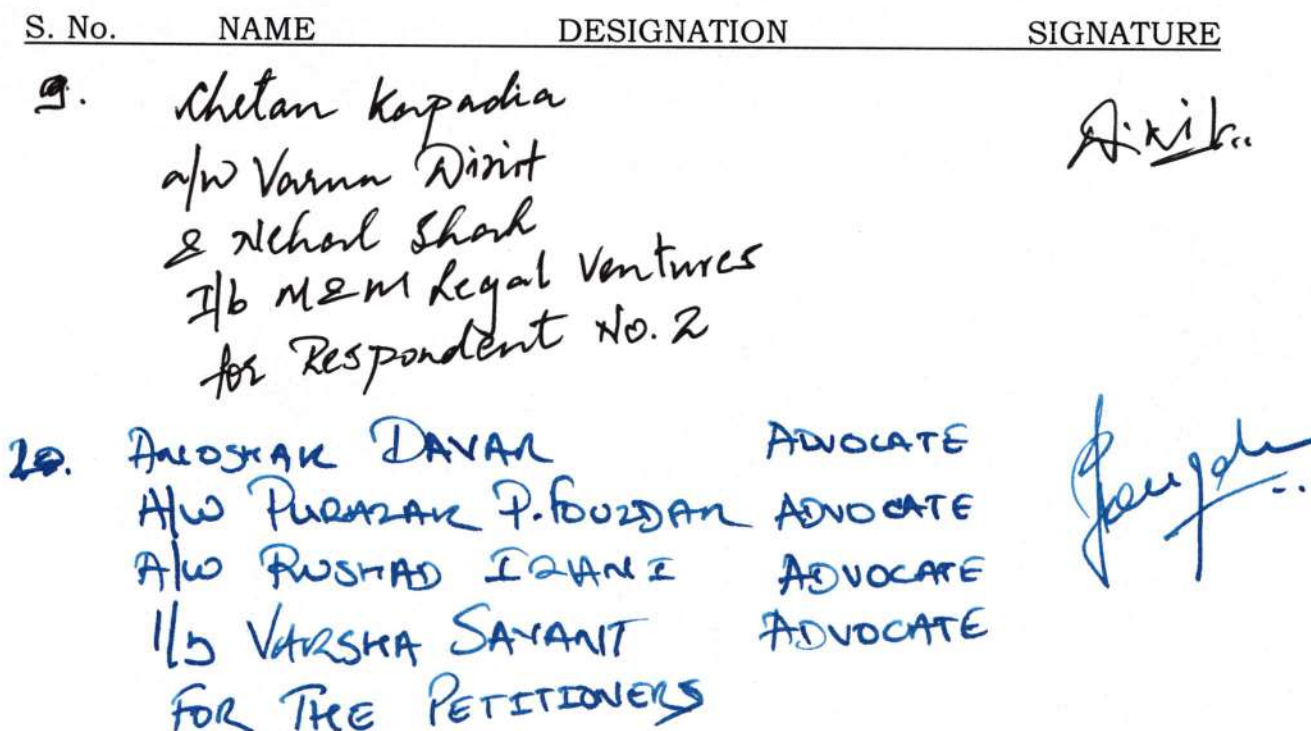 S. No. NAME DESIGNATION SIGNATURE
9. Chetan Kapadia
a/w Varun Dixit
& Nehal Shah
I/b M&M Legal Ventures
for Respondent No. 2
ANOSHAK DAVAR ADVOCATE
A/W PURAZAR P. FOUZDAR ADVOCATE
A/W RUSHAD IRANI ADVOCATE
I/b VARSHA SAWANT ADVOCATE
FOR THE PETITIONERS